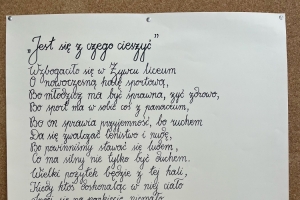 „Jest się z czego cieszyć"
Wzbogaciło się w Żywcu liceum
O nowoczesną halę sportową,
Bo młodzież ma być sprawna, żyć zdrowo,
Bo sport ma w sobie coś z panaceum,
Bo on sprawia przyjemność, bo ruchem
Da się zwalczać lenistwo i nudę,
Bo powinniśmy stawać się ludem,
Co ma silny nie tylko być duchem.
Wielki pożytek będzie z tej hali,
Kiedy ktoś doskonaląc w niej ciało